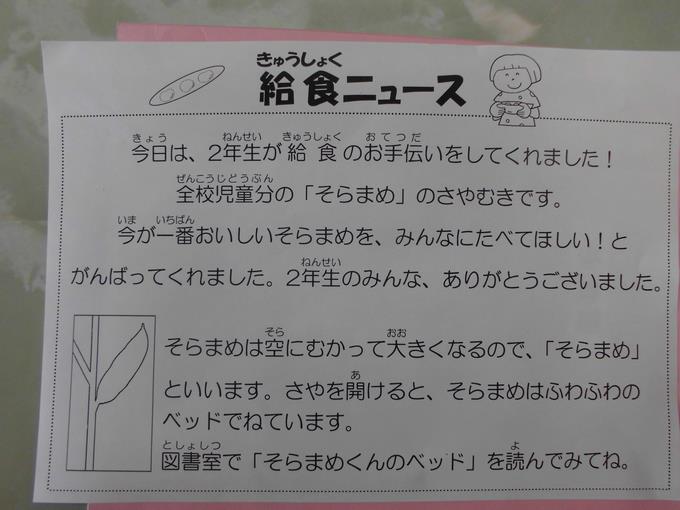 きゅうしょく
給食ニュース
きょう ねんせい きゅうしょく おてつだ
今日は、2年生が給食のお手伝いをしてくれました！
ぜんこうじどうぶん
全校児童分の「そらまめ」のさやむきです。
いま いちばん
今が一番おいしいそらまめを、みんなにたべてほしい！と
ねんせい
がんばってくれました。2年生のみんな、ありがとうございました。
そら おお
そらまめは空にむかって大きくなるので、「そらまめ」
あ
といいます。さやを開けると、そらまめはふわふわの
ベッドでねています。
としょしつ よ
図書室で「そらまめくんのベッド」を読んでみてね。